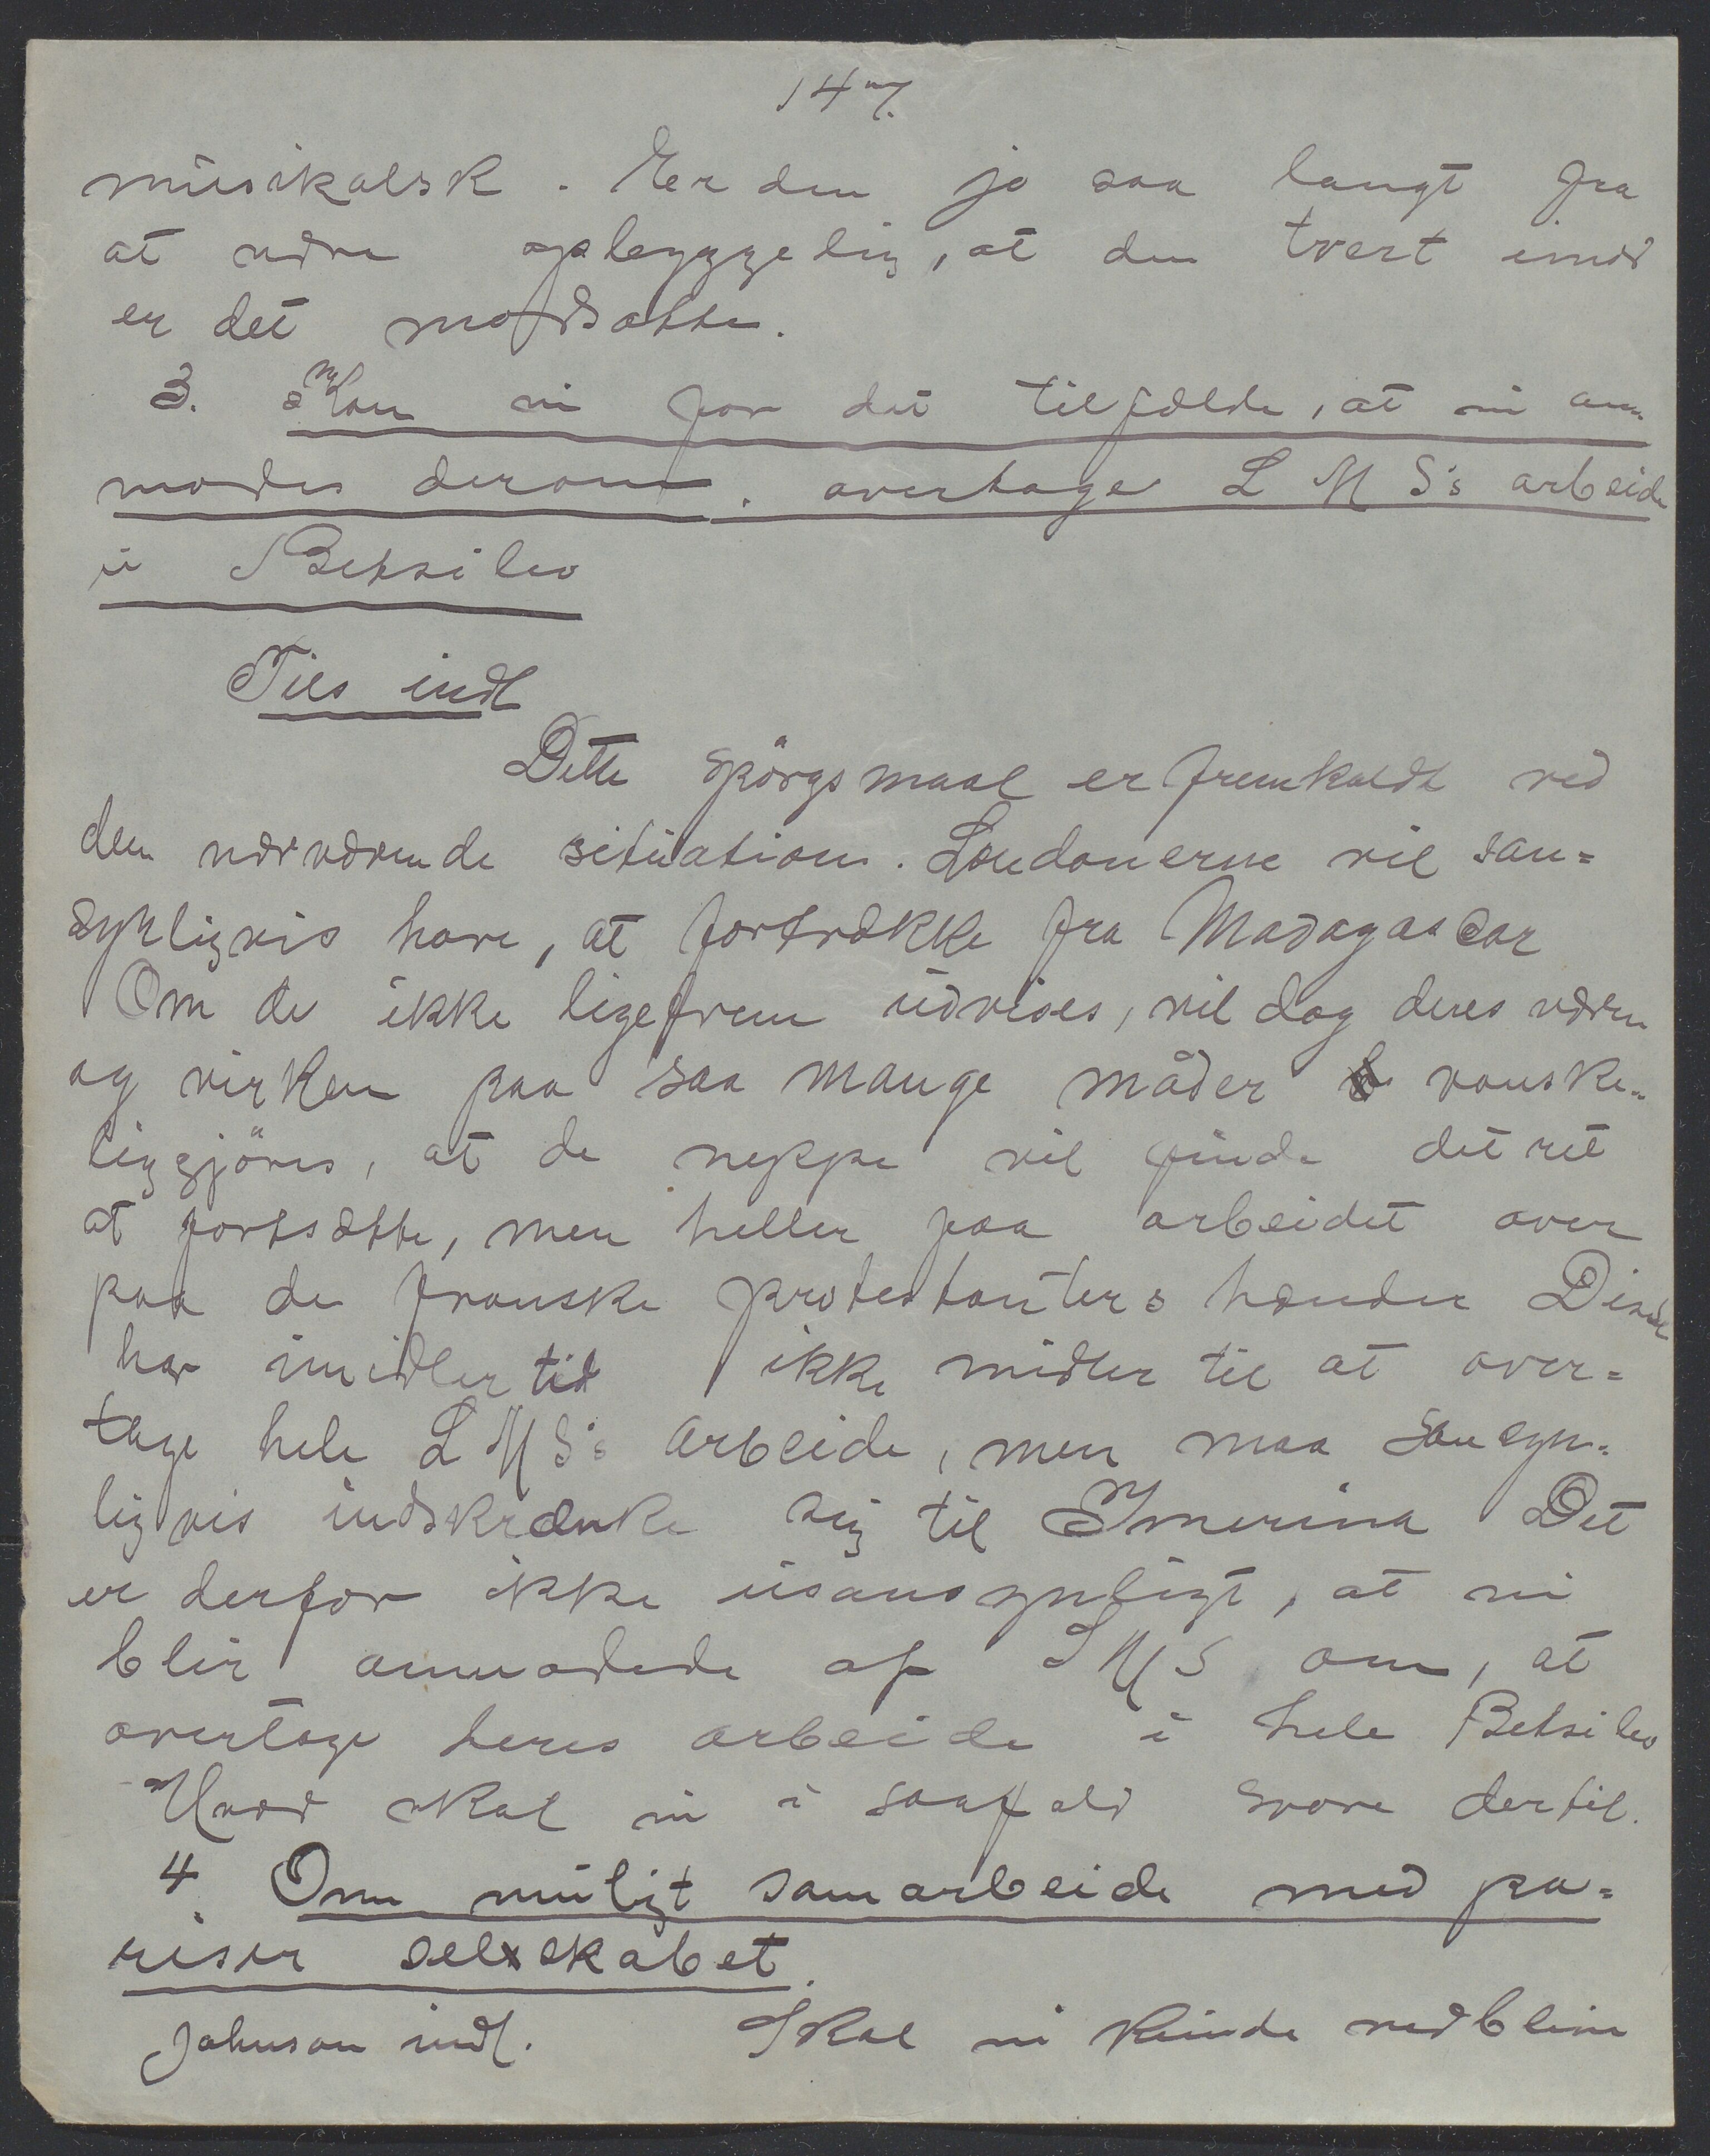 147.
musikalsk. Er den jo saa langt fra
at være oplæggelig, at den tvert imod
er det modsatte.
3. Kan vi for det tilfælde, at vi an-
modes derom, overtage L M S's arbeide
i Betsileo
Tils indl
Dette spörgsmaal er fremkaldt ved
den nærværende situation. Londonerne vil san=
synligvis have, at fortrække fra Madagascar
Om de ikke ligefrem udvises, vil dog deres væren
og virken paa saa mange måder vanske-
liggjöres, at de neppe vil finde det ret
at fortsætte, men heller faa arbeidet over
paa de franske protestanters hænder Disse
har imidlertid ikke midler til at over=
tage hele L M S's arbeide, men maa sansyn-
ligvis indskrænke sig til Imerina Det
er derfor ikke usansynligt, at vi
blir anmodede af L M S om, at
overtage deres arbeide i hele Betsileo
Hvad skal vi i saafald svare dertil.
4. Om muligt samarbeide med pa=
riser selskabet.
Johnson indl. Skal vi kunde vedblive